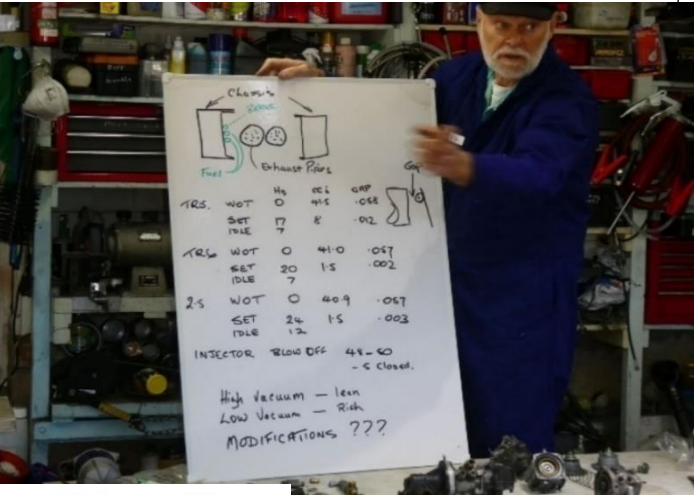 Chassis
Fuel
Exhaust Pipes
Gap
Hg cc's GAP
TR5. WOT 0 41.5 .058
SET 17 8 .012
IDLE 7
TR6 WOT 0 41.0 .057
SET 20 1.5 .002
IDLE 7
2.5 WOT 0 40.9 .057
SET 24 1.5 .003
IDLE 12
INJECTOR BLOW OFF 48-50
- 5 closed.
High Vacuum — lean
Low Vacuum — Rich
MODIFICATIONS ???